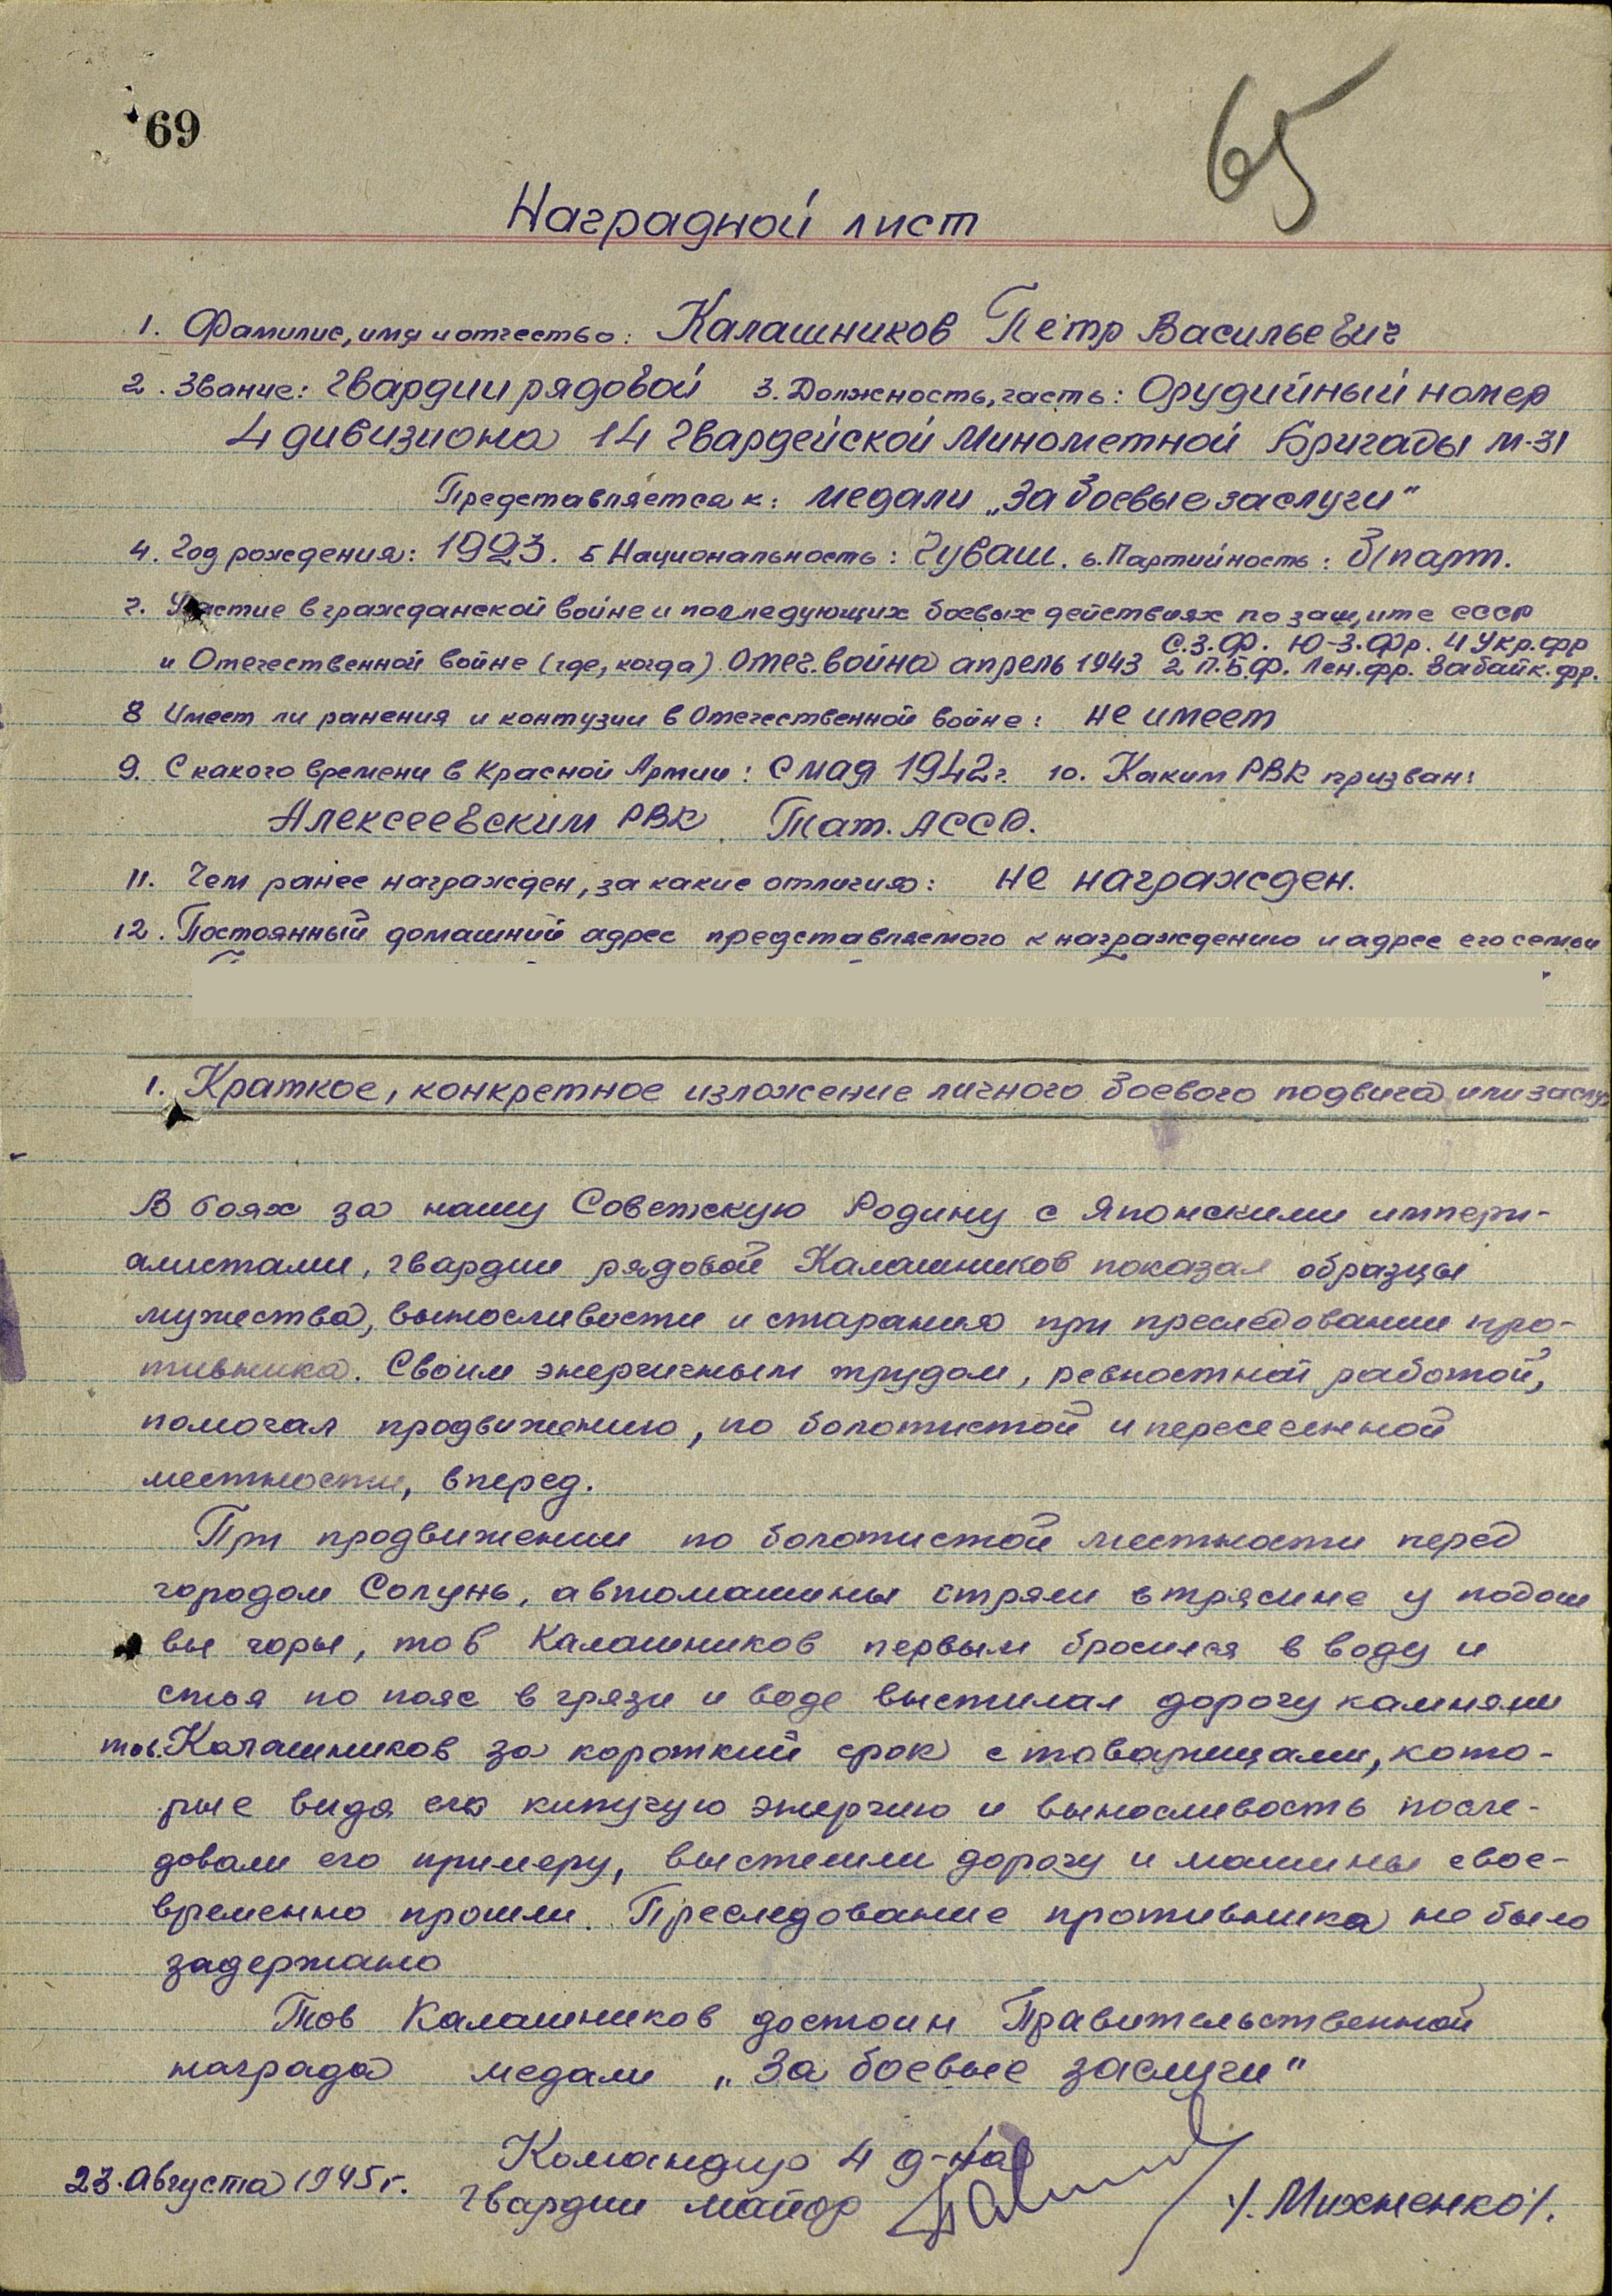 69
65
Наградной лист
1. Фамилие, имя и отчество: Калашников Петр Васильевич
2. Звание: Гвардии рядовой 3. Должность, часть: Орудийный номер
4 дивизиона 14 Гвардейской Минометной Бригады М-31
Представляется к: медали „За боевые заслуги"
4. Год рождения: 1923. 5 Национальность: Чуваш. 6. Партийность: б/парт.
7. Участие в гражданской войне и последующих боевых действиях по защите СССР
С.З.Ф. Ю-З.Фр. 4 Укр.фр
и Отечественной войне (где, когда) Отеч. война апрель 1943 2 П.Б.Ф. Лен.фр. Забайк.фр.
8 Имеет ли ранения и контузии в Отечественной войне: не имеет
9. С какого времени в Красной Армии: с мая 1942 г. 10. Каким РВК призван:
Алексеевским РВК Тат. АССР.
11. Чем ранее награжден, за какие отличия: не награжден.
12. Постоянный домашний адрес представляемого к награждению и адрес его семьи
1. Краткое, конкретное изложение личного боевого подвига или заслуг
В боях за нашу Советскую Родину с Японскими импери-
алистами, гвардии рядовой Калашников показал образцы
мужества, выносливости и старания при преследовании про-
тивника. Своим энергичным трудом, ревностной работой,
помогал продвижению, по болотистой и пересеченной
местности, вперед.
При продвижении по болотистой местности перед
городом Солунь, автомашины стряли в трясине у подош
вы горы, тов Калашников первым бросился в воду и
стоя по пояс в грязи и воде выстилал дорогу камнями
тов. Калашников за короткий срок с товарищами, кото-
рые видя его кипучую энергию и выносливость после-
довали его примеру, выстелили дорогу и машины свое-
временно прошли. Преследование противника не было
задержано
Тов Калашников достоин Правительственной
награда медали „За боевые заслуги"
Командир 4 д-на
23. Августа 1945 г. Гвардии майор /. Михненко/.